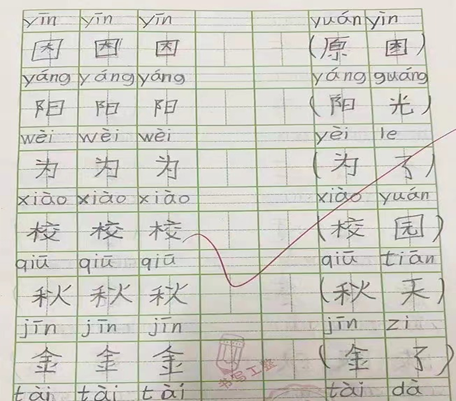 yīn yīn yīn yuán yìn
因 因 因 (原 因)
yáng yáng yáng yáng guāng
阳 阳 阳 (阳 光)
wèi wèi wèi yèi le
为 为 为 (为 了)
xiào xiào xiào xiào yuán
校 校 校 (校 园)
qiū qiū qiū qiū tiān
秋 秋 秋 (秋 天)
jīn jīn jīn jīn zi
金 金 金 (金 了)
书写工整
tài tài tài tài dà